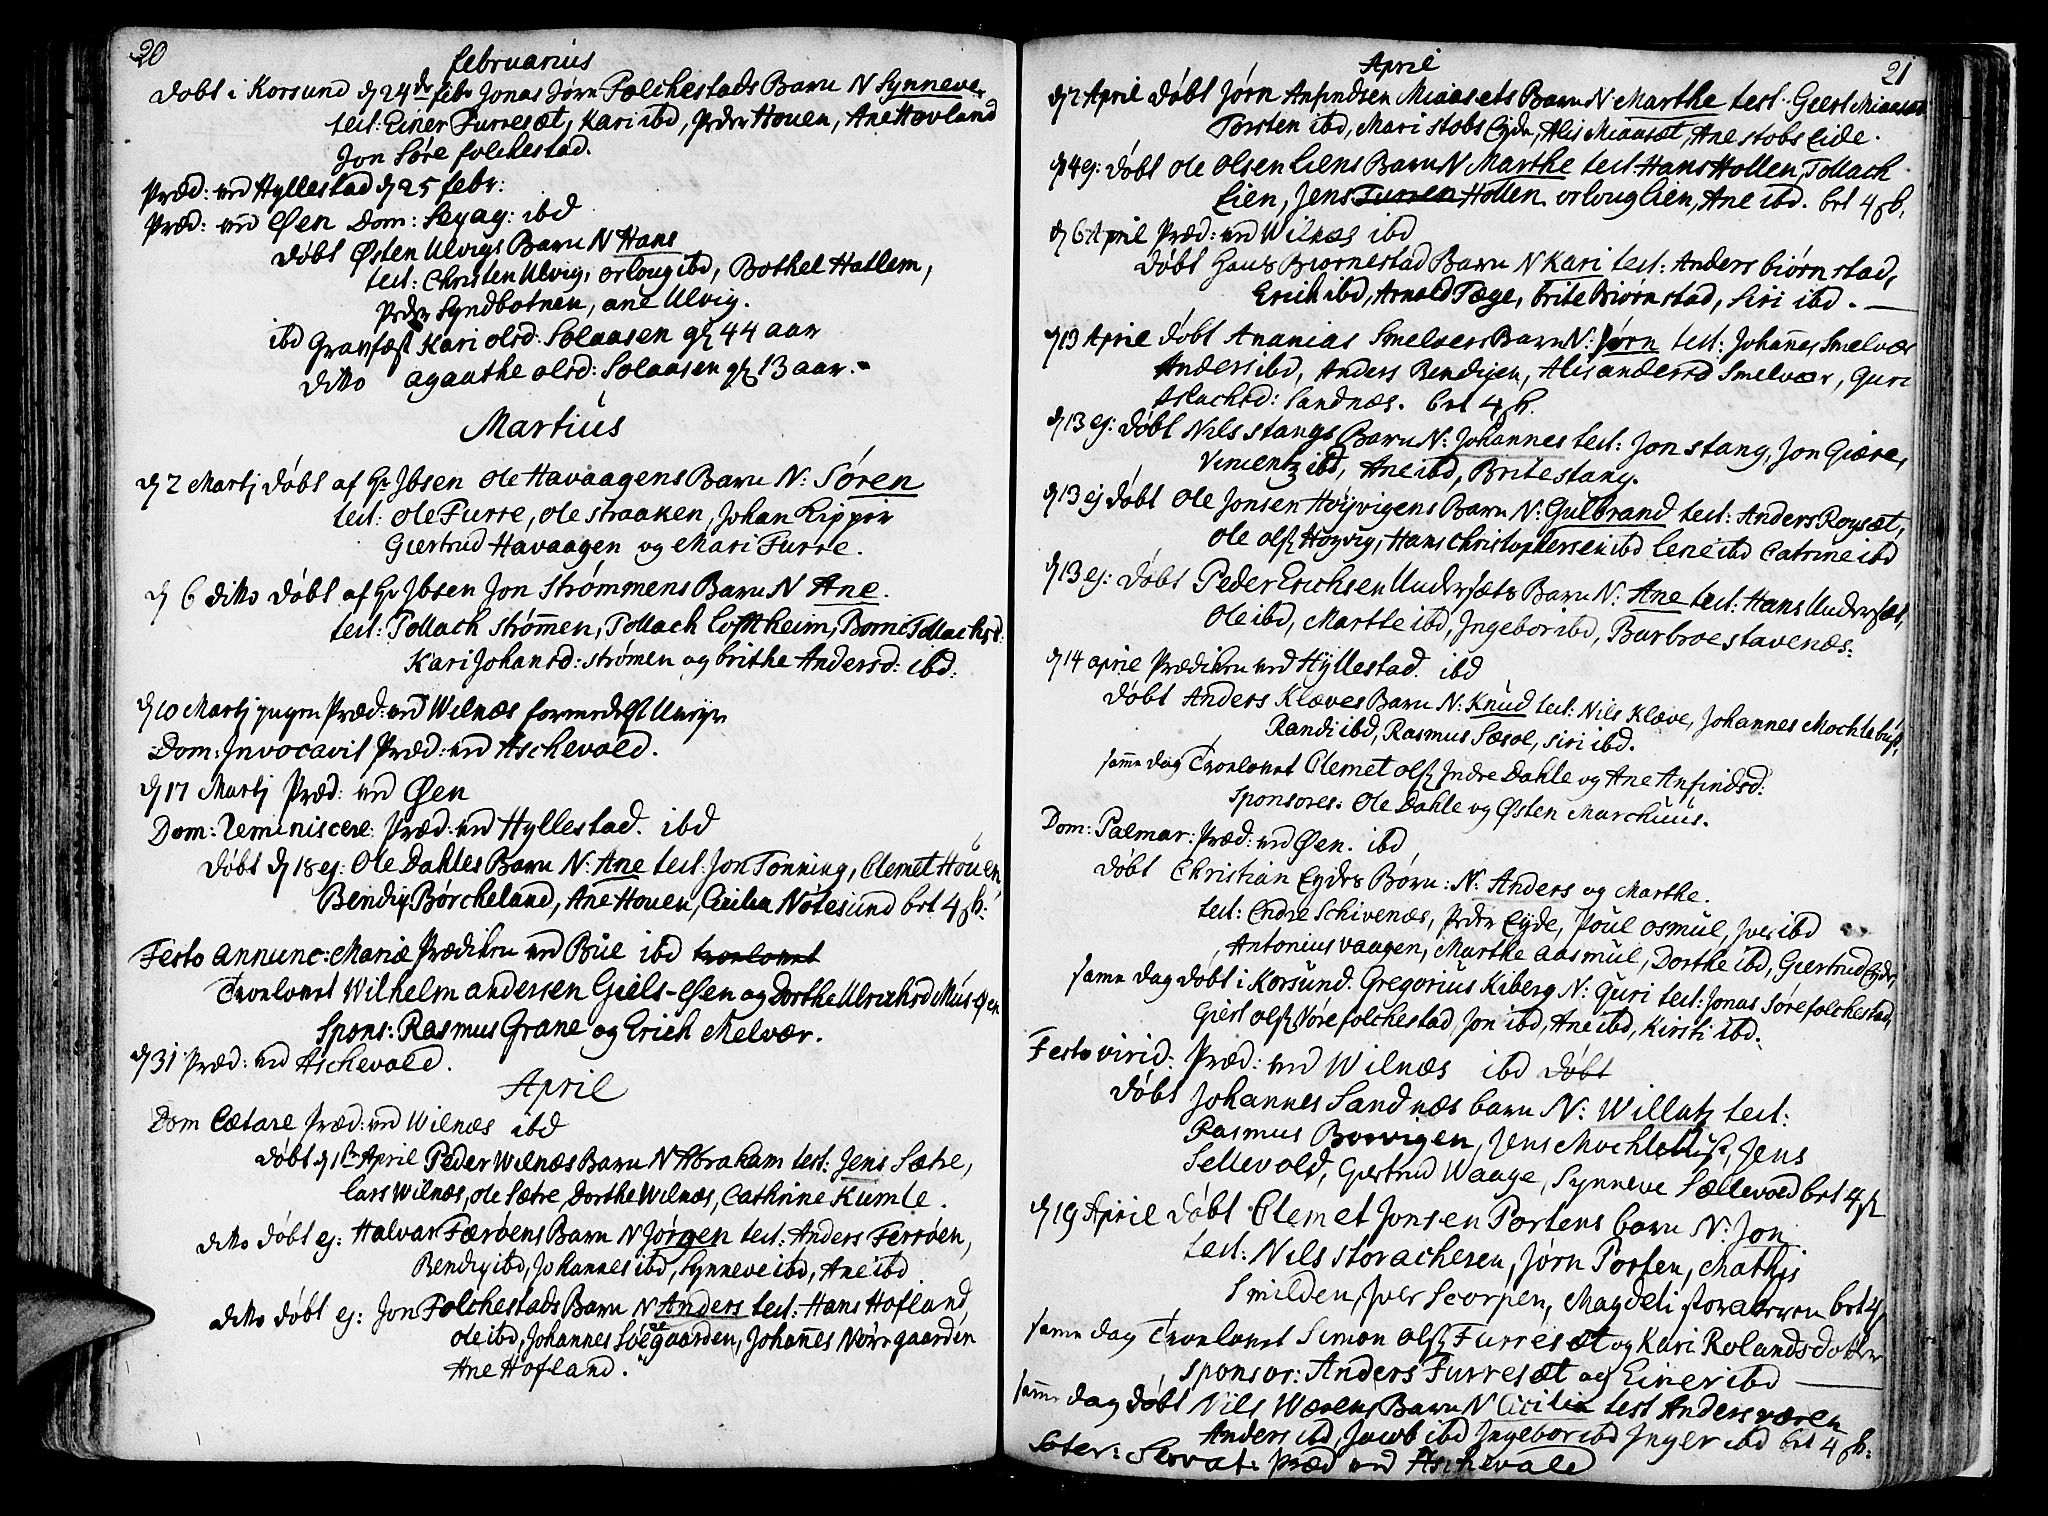 20
februarius
Døbt i Korsund d 24de febr Jonas Jørn Folchestads Barn N Synneve,
test: Einer Furresæt, Kari ibd, Peder Houen, Ane Hovland
Jon Søre folchestad.
Præd: ved Hyllestad d 25 febr:
Præd: ved Øen Dom: Sexag: ibd
Døbt Østen Ulvigs Barn N Hans
test: Christen Ulvig, orloug ibd, Bothel Hatlem,
Peder Syndbotnen, ane Ulvig.
ibd Gravfæst Kari olsd: Solaasen gl 44 aar
ditto agaathe olsd: Solaasen gl 13 aar.
Martius
d 2 Martj døbt af Hr Jbsen Ole Havaagens Barn N: Søren
test: Ole Furre, Ole straaken, Johan Lipper
Giertrud Havaagen og Mari Furre.
d 6 ditto døbt af Hr Jbsen Jon Strømmens Barn N Ane.
test: Tollach strømmen, Tollach Lofftheim, Borni Tollachsd:
Kari Johansd: strømen og brithe Andersd: ibd:
d 10 Martj ingen Præd: ved Wilnæs formedelst Uveyr
Dom: Invocavit Præd: ved Aschevold.
d 17 Martj Præd: ved Øen
Dom: Reminiscere: Præd: ved Hyllestad. ibd
Døbt d 18 ej: Ole Dahles Barn N: Ane test: Jon Tonning, Clemet Houen
Bendix Børcheland, Ane Houen, Cicilia Nötesund brt 4 sk:
Festo Annunc: Mariæ Prædiken ved Bue ibd trolovet
Trolovet Wilhelm andersen Giels-Øen og Dorthe Ulrichsd Mus-Øen
Spons: Rasmus Grane og Erich Melvær.
d 31 Præd: ved Aschevold.
April
Dom Lætare Præd: ved Wilnæs ibd
døbt d 1te April Peder Wilnæs Barn N Abraham test: Jens Sætre,
Lars Wilnæs, ole Sætre, Dorthe Wilnæs, Cathrine Kumle.
ditto døbt ej: Halvar Færøens Barn N Jørgen test: Anders Ferrøen,
Bendix ibd, Johannes ibd, Synneve ibd, Ane ibd
ditto døbt ej: Jon Folchestads Barn N Anders test: Hans Hofland,
ole ibd, Johannes Solegaarden, Johannes Nørregaarden
Ane Hofland.
21
April
d 2 April døbt Jørn Anfindsen Miaasets Barn N Marthe test: Giert Miaaset
Torsten ibd, Mari stobs Eyde, Alis Miaasæt, Ane stobs Eide.
d 4 ej: døbt Ole Olsen Liens Barn N Marthe test: Hans Hollen, Tollach
Lien, Jens Hollen orloug Lien, Ane ibd. brt 4 sk.
d 6 April Præd: ved Wilnæs ibd
Døbt Gaus Biørnestad Barn N Kari test: Anders biørnstad,
Erich ibd, Arnold Tæge, brite Biørnstad, Siri ibd.
d 13 April døbt Ananias Smelvers Barn N: Jørn test: Johannes Smelvær
Anders ibd, Anders Bendixen, Alis andersd Smelvær, Guri
Aslachsd: Sandnæs. brt 4 sk.
d 13 ej: døbt Nils stangs Barn N: Johannes test: Jon stang, Jon Giære,
Vincentz ibd, Ane ibd, Brite stang.
d 13 ej døbt Ole Jonsen Höyvigens Barn N: Gulbrand test: Anders Roysæt,
Ole olss Höyvig, Hans Christophersen ibd Lene ibd Catrine ibd
d 13 ej: døbt Peder Erichsen Undersæts Barn N: Ane test: Hans Undersæt,
Ole ibd, Marthe ibd, Ingebor ibd, Barbroe stavenæs:
d 14 april Prædiken ved Hyllestad ibd
Døbt Anders Klæves Barn N: Knud test: Nils Klæve, Johannes Mochlebust,
Randi ibd, Rasmus Sæsol, siri ibd.
samme dag Trolovet Clemet olss Indre Dahle og Ane Anfindsd:
sponsores: Ole Dahle og Østen Marchuus.
Dom: Palmar: Præd: ved Øen. ibd
døbt Christian Eydes Børn: N: Anders og Marthe.
test: Endre Schivenæs, Peder Eyde, Poul osmul, Iver ibd
Antonius vaagen, Marthe aasmul, Dorthe ibd, Giertrud Eyde,
samme dag døbt i Korsund. Gregorius Kiberg N: Guri test: Jonas Sørefolchestad,
Giert olss Nörefolchestad, Jon ibd, Ane ibd, Kirsti ibd.
Festo virid: Præd: ved Wilnæs ibd døbt
døbt Johannes Sandnæs barn N: Willatz test:
Rasmus Borvigen, Jens Mochlebust, Jens
Sellevold, Giertrud Waage, Synneve Sællevold brt 4 sk
d 19 April døbt Clemet Jonsen Portens barn N: Jon
test: Nils storacheren, Jørn Porten, Mathis
Smilden, Iver Scorpen, Magdeli storacheren brt 4 sk
samme dag Trolovet Simon olss Furresæt og Kari Rolandsdotter
sponsor: Anders Furresæt og Einer ibd
samme dag døbt Nils Wærens Barn N Cicilia test Anders væren
Anders ibd, Jacob ibd Ingebor ibd Inger ibd brt 4 sk:
Soter: Servat: Præd ved Aschevold